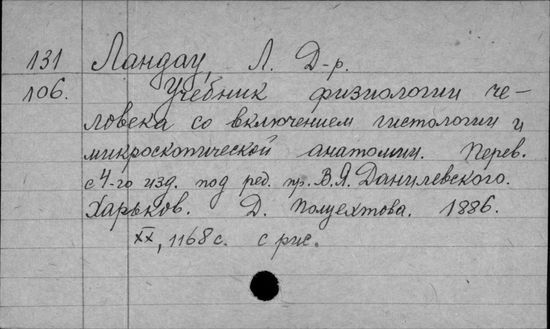 131 Ландау, Л. Д-р.
106. Учебник физиологии че-
ловека со включением гистологии и
микроскопической анатомии. Перев.
с 4-го изд. под ред. пр. В.Я. Данилевского.
Харьков. Д. Полуехтова. 1886.
XX, 1168 с. с рис.